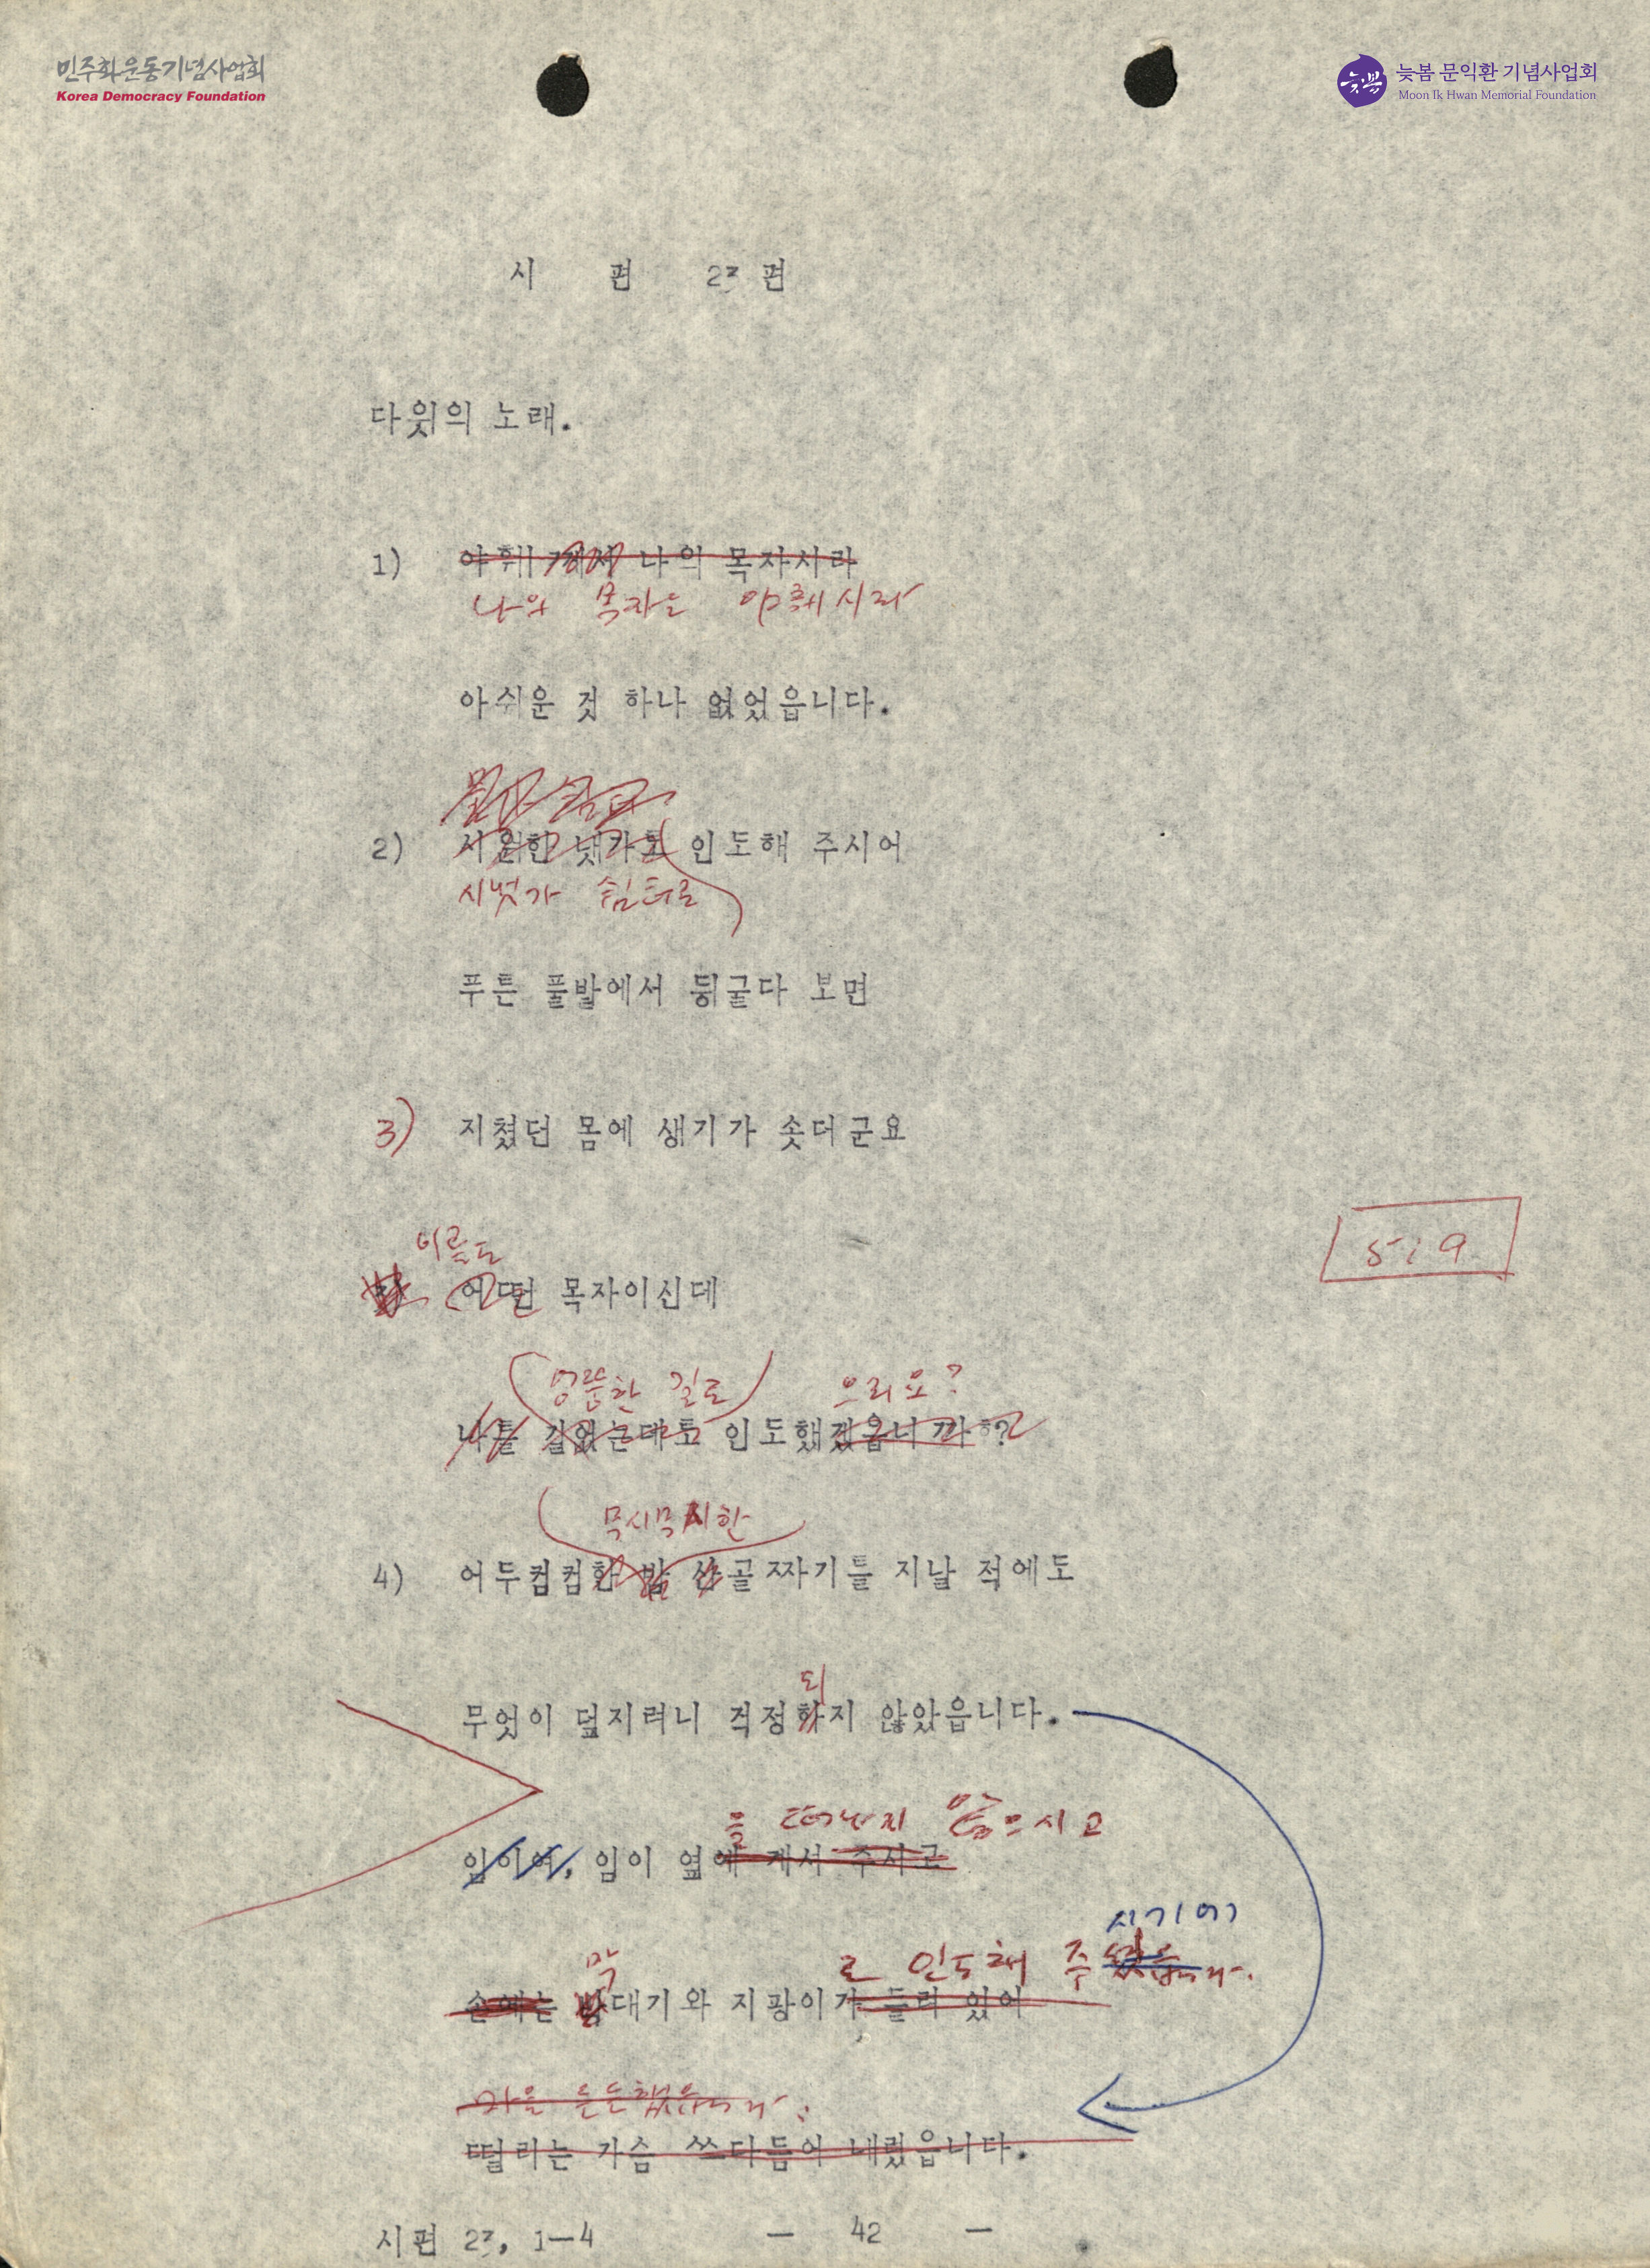 민주화운동기념사업회
Korea Democracy Foundation
늦봄
늦봄 문익환 기념사업회
Moon Ik Hwan Memorial Foundation
시 편 23 편
다윗의 노래.
1) 야훼께서 나의 목자시라
나의 목자는 야훼시라
아쉬운 것 하나 없었읍니다.
2) 시원한 냇가로 인도해 주시어
시냇가 쉼터로
푸른 풀밭에서 뒹굴다 보면
3) 지쳤던 몸에 생기가 솟더군요
이름도
어떤 목자이신데
5:9
엉뚱한 길로 으리요?
나를 길없는데로 인도했겠읍니까?
무시무시한
4) 어두컴컴한 밤 산골짜기를 지날 적에도
되
무엇이 덮치려니 걱정하지 않았읍니다.
을 떠나지 않으시고
임이여, 임이 옆에 계서 주시고
시기에
막 로 인도해 주
손에는 대기와 지팡이가 들려 있어
든든했읍니다.
떨리는 가슴 쓰다듬어 내렸읍니다.
시편 23, 1—4 — 42 —